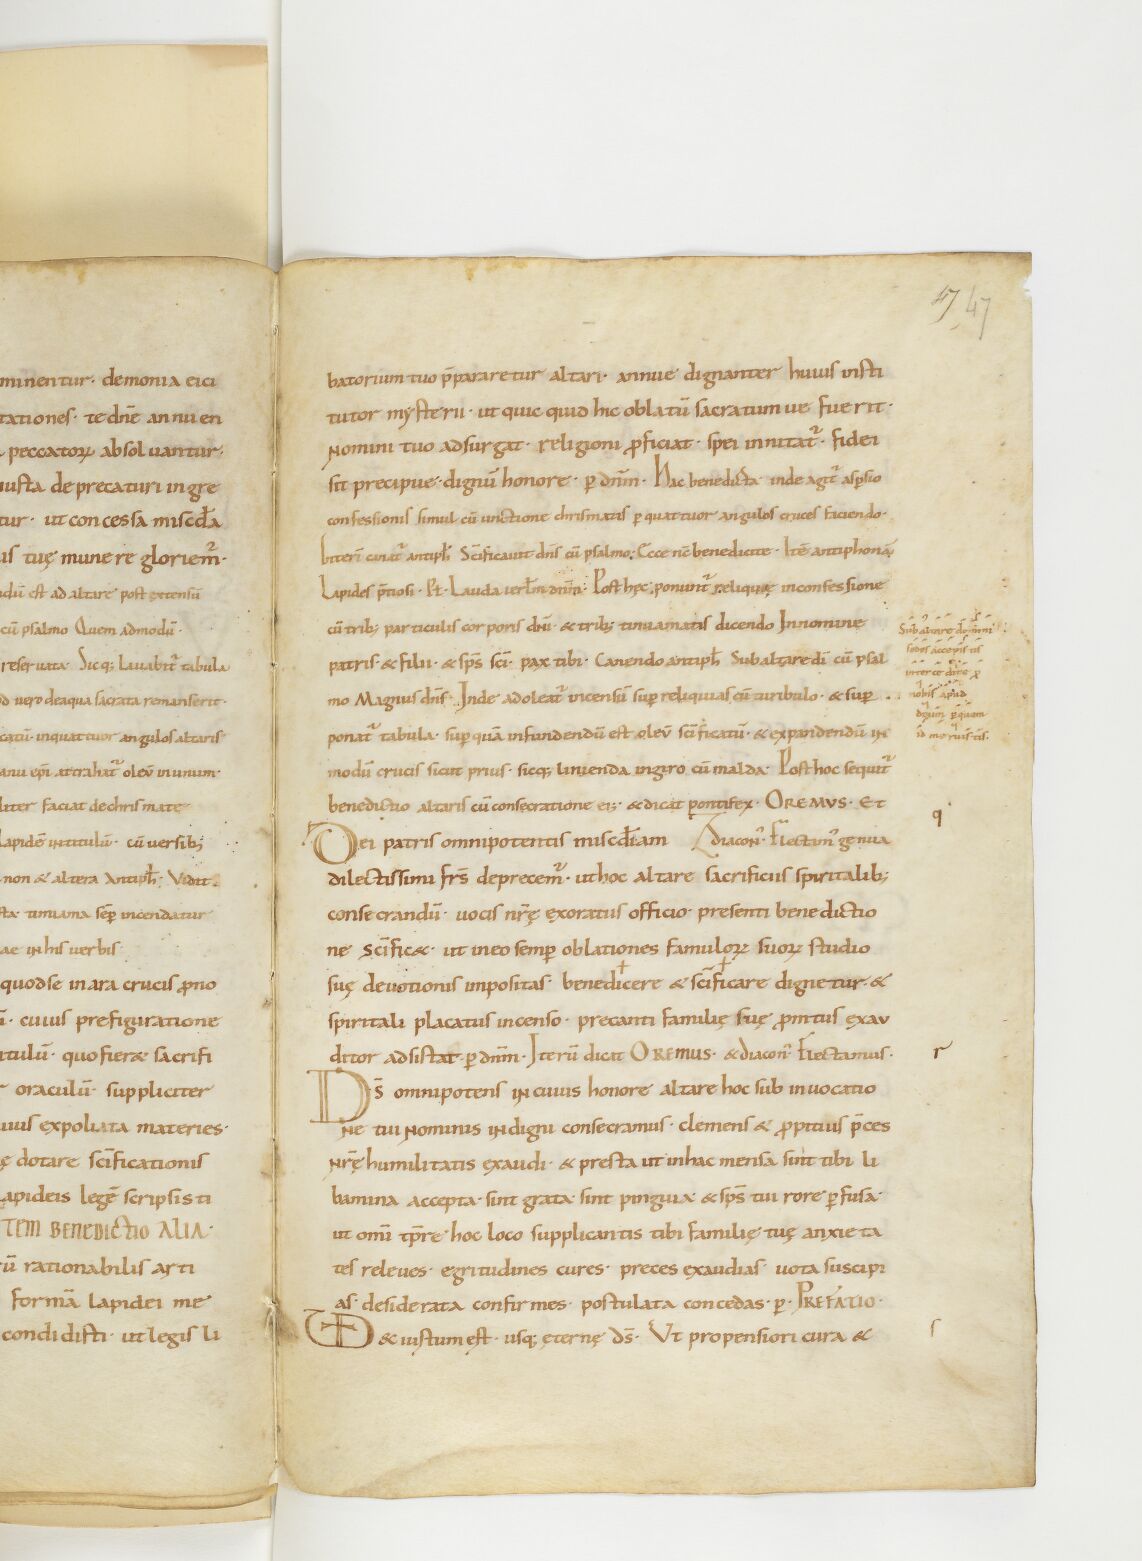 minentur. demonia eici
tationes. te dnē annuen
peccatoꝝ absoluantur.
iusta deprecaturi ingre
tur. ut concessa miscd̄a
tuę munere gloriem̄.
est ad altare post extensū
cū psalmo Quem admodū.
reseruata. Sicq; lauabit tabula
vero de aqua sacrata remanserit.
inquattuor angulos altaris
manu ep̄i oleū inunum.
liter faciat de chrismate
lapidē intitulū. cū versib;
non & altera Antiph̄. Vidit.
timiama semp̄ incendatur
ae in his verbis
quod se in ara crucis p̄no
cuius prefiguratione
titulū. quo fieræ sacrifi
oraculū. suppliciter
expolita materies.
ę dotare scīficationis
lapideis legē scripsisti
TEM BENEDICTIO ALIA.
ū rationabilis arti
formā lapidei me
condidisti. ut legis li
47 47
batorium tuo p̄pararetur altari. annue dignanter huius insti
tutor mysterii. ut quic quid hic oblatū sacratum ue fuerit.
Nomini tuo adsurgat. religioni p̄ficiat. spei innitat̄. fidei
sit precipue. dignū honore. p̄ dnm̄. Hac benedicta inde agit̄ asp̄sio
confessionis simul cū unctione chrismatis p̄ quattuor angulos cruces faciendo.
Interī canat̄ antiph̄ Scīficauit dn̄s cū psalmo. Ecce nē benedicite. Itē antiphonā.
Lapides p̄tiosi. Ps. Lauda ierlm̄ dnm̄. Post hęc ponunt̄ reliquię inconfessione
cū trib; particulis corporis dni. & trib; timiamatis dicendo In nomine
patris & filii. & sp̄s scī. pax tibi. Canendo antiph̄ Sub altare dī cū psal
mo Magnus dn̄s. Inde adoleat̄ incensū sup̄ reliquias cū turibulo. & sup̄
ponat̄ tabula. sup̄ quā infundendū est oleū scīficatū. & expandendū in
modū crucis sicut prius. sicq; linienda ingiro cū malda. Post hoc sequit̄
benedictio altaris cū consecratione ei;. & dicat pontifex. OREMVS. Et
Dei patris omnipotentis miscd̄iam diacon̄. Flectam̄ genua
dilectissimi frs̄ deprecem̄. ut hoc altare sacrificiis spiritalib;
consecrandū. uocis nr̄ę exoratus officio. presenti benedictio
ne scīficæ. ut in eo semp̄ oblationes famuloꝝ suoꝝ studio
suę deuotionis impositas. benedicere & scīficare dignetur. &
spiritali placatus incenso. precanti familię suę p̄mtus exau
ditor adsistat. p̄ dnm̄. Iterū dicit OREMUS. & diacon̄ Flectamus.
Ds̄ omnipotens in cuius honore altare hoc sub inuocatio
ne tui Nominis indigni consecramus. clemens & p̄pitius p̄ces
nr̄ę humilitatis exaudi. & presta ut in hac mensa sint tibi li
bamina accepta. sint grata. sint pinguia & sp̄s tui rore p̄fusa.
ut omī tp̄re. hoc loco supplicantis tibi familię tuę anxieta
tes releues. egritudines cures. preces exaudias. uota suscipi
as. desiderata confirmes. postulata concedas. p̄. PREFATIO.
& iustum est. usq; eternę ds̄. Ut propensiori cura &
Sub altare domini
sedes accepistis
intercedite p̄
nobis apud
dnm̄ p̄ quem
meruistis.
q
r
s